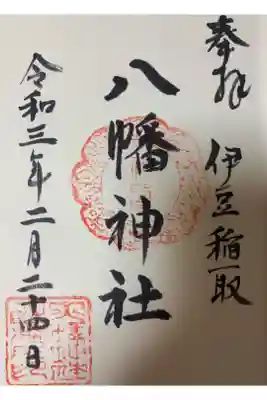 奉拝
伊豆稲取
八幡神社
令和三年二月二十四日